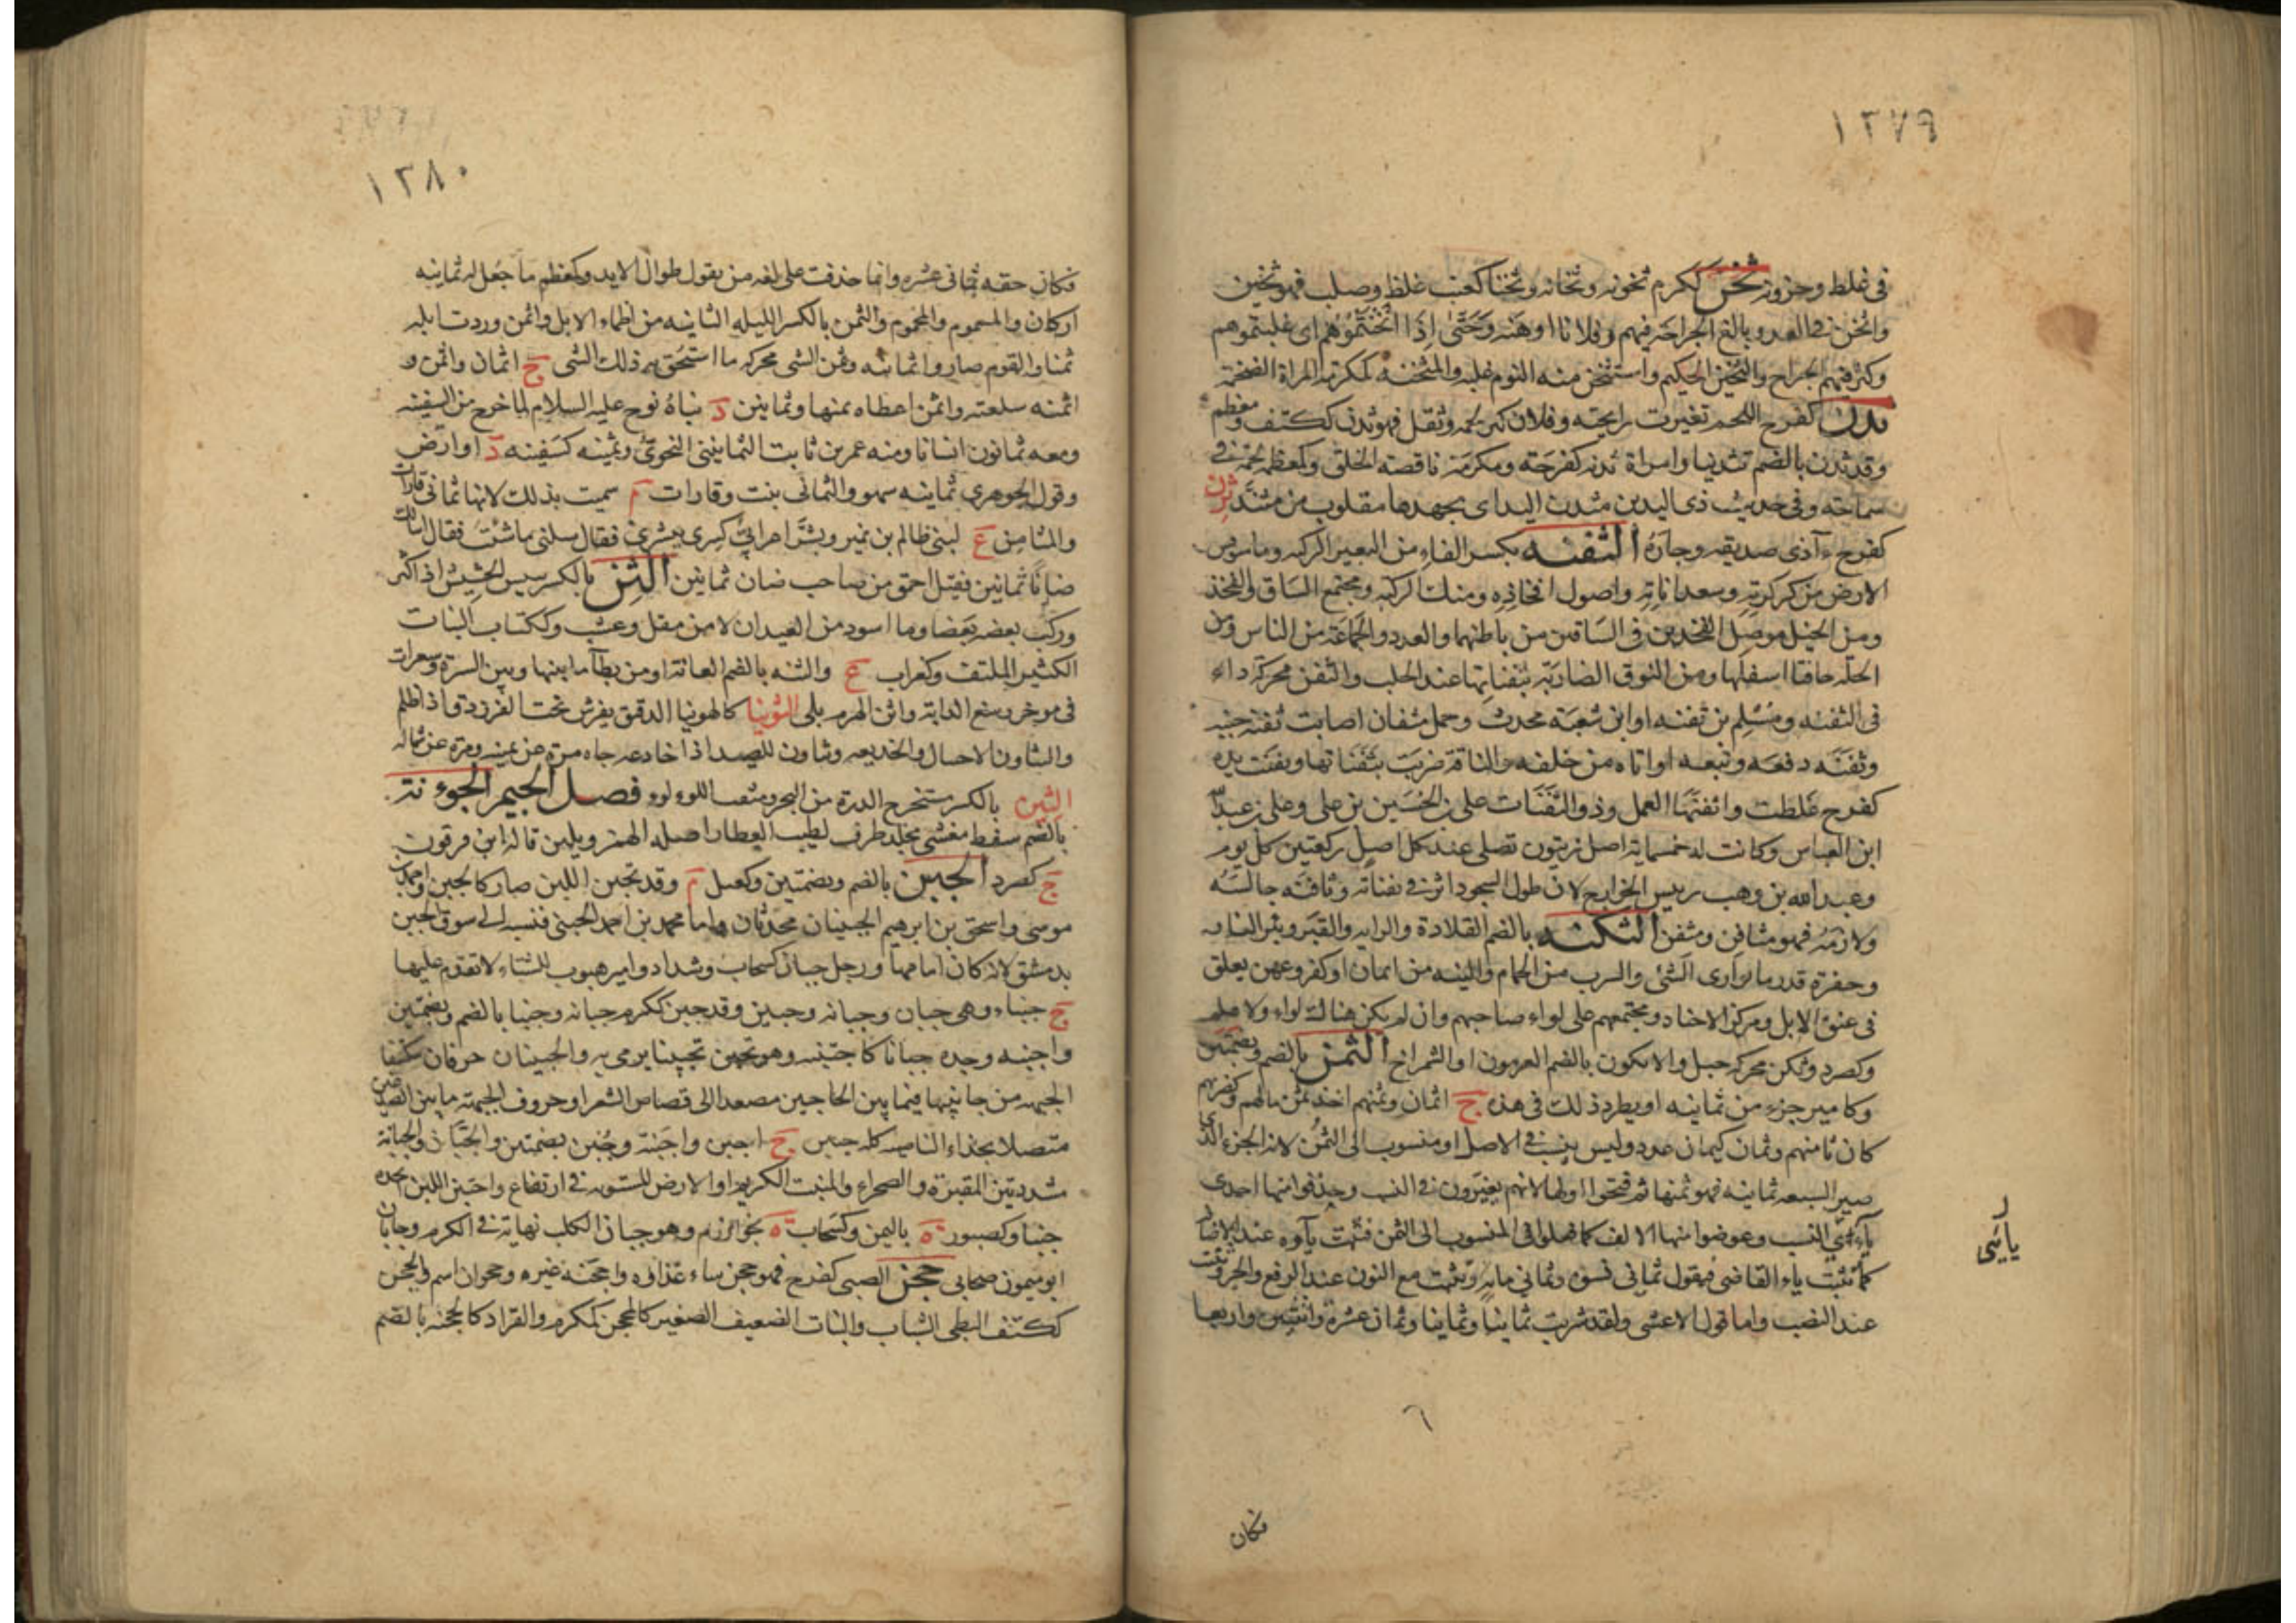 ١٢٧٩
فى غلظ وحزونة ثخن ككرم ثخونة وثخانة وثخنا كعنب غلظ وصلب فهو ثخين
واثخن فى العدو بالغ الجراحة فيهم وفلانا اوهنه وحَتَّىٰ اِذَا اثْخَنْتُمُوْهُمْ اى غلبتموهم
وكثر فيهم الجراح والثخين الحكيم واستثخن منه النوم غلبه والمثخنة كمكرمة المراة الضخمة
ثدن كفرح اللحم تغيرت رايحته وفلان كثر لحمه وثقل فهو ثدن ككتف ومعظم
وقد ثدن بالضم تثدينا وامراة ثدنة كفرحة ومكرمة ناقصة الخلق وكمعظمة لحمة فى
سماجة وفى حديث ذى اليدين مثدن اليد اى يجهدها مقلوب من مثند ثرن
كفرح آذى صديقه وجارَهُ الثفنه بكسر الفاء من البعير الركبة وما مس
الارض من كركرته وسعداناته واصول افخاذه ومنك الركبة ومجتمع الساق والفخذ
ومن الخيل موصل الفخذين فى الساقين من باطنهما والعدد والجماعة من الناس ومن
الحلة حافتا اسفلها ومن النوق الضاربة بثفناتها عند الحلب والثفن محركة داء
فى الثفنه ومُسْلِم بن ثفنه او ابن شعبَة محدث وجمل مثفان اصابت ثفنته جنبه
وثفنَه دفعَه وتبعه او اتاه من خلفه والناقة ضربَت بثَفنَاتها وثفنَت يده
كفرح غلظت واثفنهَا العمل وذو الثَّفنَات على بن الحُسَين بن على وعلى بن عبد الله
ابن العباس وكانت له خمسماية اصل زيتون تصلى عند كل اصل ركعتين كل يوم
وعبد الله بن وهب رييس الخوارج لان طول السجود اثر فى ثفناته وثافنه جالسَهُ
ولازمَهُ فهو مثافن ومثفن الثكنه بالضم القلادة والراية والقبر وبئر النار
وحفرة قدر ما يوارى الشئ والسرب من الحمام والنية من ايمان او كفر وعهن يعلق
فى عنق الابل ومركز الاجناد ومجتمعهم على لواء صاحبهم وان لم يكن هنالك لواء ولا علم
وكصرد وثكن محركة جبل والاثكون بالضم العرجون او الشمراخ الثمن بالضم وبضمتين
وكامير جزء من ثمانيه او يطرد ذلك فى هذه ج اثمان وثمنهم اخذ ثمن مالهم وكضربهم
كان ثامنهم وثمان كيمان عدد وليس بنسب فى الاصل او منسوب الى الثمُن لانه الجزء الذى
صير السبعه ثمانيه فهو ثمنها ثم فتحوا اولها لانهم يغيرون فى النسب وحذفوا منها احدى
ياءى النسب وعوضوا منها الالف كما فعلوا فى المنسوب الى اليمن فثبت ياوه عند الاضافة
كما ثبتت ياء القاضى فيقول ثمانى نسوة وثمانى ماية وتثبت مع النون عند الرفع والجر وثبت
عند النصب واما قول الاعشى ولقد شربت ثمانيا وثمانيا وثمان عشرة واثنتين واربعا
ر
يائى
فكان
١٢٨٠
فكان حقه ثمانى عشره وانما حذفت على لغة من يقول طوال الايد وكمعظم ما جُعل له ثمانيه
اركان والمسموم والمحموم والثمن بالكسر الليلة الثانيه من اظماء الابل واثمن وردت ابله
ثمنا والقوم صاروا ثمانيه وثمن الشى محركة ما استحق به ذلك الشى ج اثمان واثمن و
اثمنه سلعته واثمن اعطاه ثمنها وثمانين د بناهُ نوح عليه السلام لما خرج من السفينه
ومعه ثمانون انسانا ومنه عمر بن ثابت الثمانينى النحوى وثمينه كسفينه د او ارض
وقول الجوهرى ثمانيه سهو والثمانى بنت وقارات م سميت بذلك لانها ثمانى قارات
والمثامن ع لبنى ظالم بن نمير وبشر اعرابىّ كسرى ببشرى فقال سلنى ما شئت فقال اسالك
ضانًا ثمانين فقيل احمق من صاحب ضان ثمانين الثن بالكسر يبس الحشيش اذا كثر
وركب بعضه بعضا وما اسود من العيدان لا من بقل وعشب وككتاب النبات
الكثير الملتف وكغراب ع والثنه بالضم العانة او من يطاء ما بينها وبين السرة وشعرات
فى موخر رسغ الدابة واثن الهرم بلى الثوينا كالهوينا الدقيق يفرش تحت الفرزدق اذا طلم
والتثاون الاحتيال والخديعه وتثاون للصيد اذا خادعه جاه مرة عن يمينه ومرة عن شماله
الثين بالكسر مستخرج الدرة من البحر ومثقب اللولو فصل الجيم الجوءنة
بالضم سفط مغشى بجلد ظرف لطيب العطار اصله الهمز ويلين قاله ابن قرقول
ج كصرد الجبن بالضم وبضمتين وكعتل م وقد تجبن اللبن صار كالجبن واحمد بن
موسى واسحق بن ابرهيم الجبنيان محدثان واما محمد بن احمد الجبنى فنسبه الى سوق الجبن
بدمشق لانه كان امامها ورجل جبان كسحاب وشداد وامير هيوب للاشياء لا تقدم عليها
ج جبناء وهى جبان وجبانة وجبين وقد جبن ككرم جبانة وجبنا بالضم وبضمتين
واجبنه وجده جبانا كاجتبنه وهو تجبن تجبينا يرمى به والجبينان حرفان مكتنفا
الجبهه من جانبيها فيما بين الحاجبين مصعدا الى قصاص الشعر او حروف الجبهة ما بين الصدغين
متصلا بحذاء الناصيه كله جبين ج اجبن واجبنة وجُبن بضمتين والجبَّان والجبانة
مشددتين المقبرة والصحراء والمنبت الكريم او الارض المستويه فى ارتفاع واجتبن اللبن اتخذه
جبنا وكصبور ة باليمن وكسحاب ة بخوارزم وهو جبان الكلب نهاية فى الكرم وجابان
ابو ميمون صحابى حجن الصبى كفرح فهو جحن ساء غذاوه واجحنه غيره وجحوان اسم والجحن
ككتف البطى الشباب والنبات الضعيف الصغير كالمجحن كمكرم والقراد كالجحنه بالضم